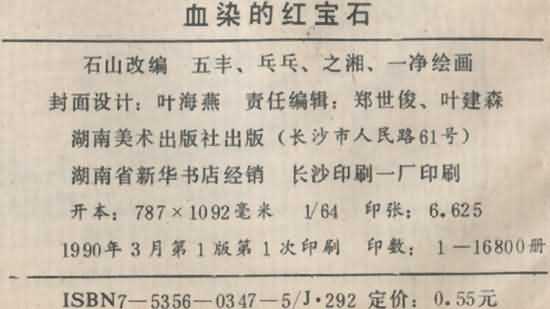 血染的红宝石
石山改编　五丰、乓乓、之湘、一净绘画
封面设计：叶海燕　责任编辑：郑世俊、叶建森
湖南美术出版社出版（长沙市人民路61号）
湖南省新华书店经销　长沙印刷一厂印刷
开本：787×1092毫米　1/64　印张：6.625
1990年3月第1版第1次印刷　印数：1—16800册
ISBN7—5356—0347—5/J·292 定价：0.55元